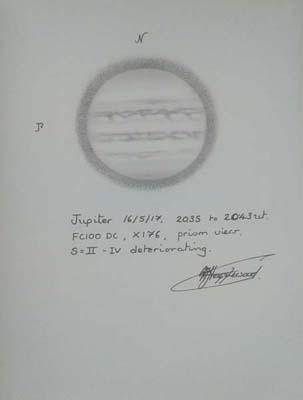 N
P
Jupiter 16/5/17. 2035 to 2043 ut.
FC100 DC, X176, prism view.
S=II - IV deteriorating.